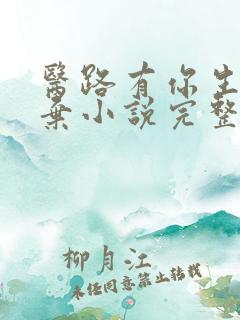 醫路有你生
棄小說完整
柳月江
未經同意禁止轉載